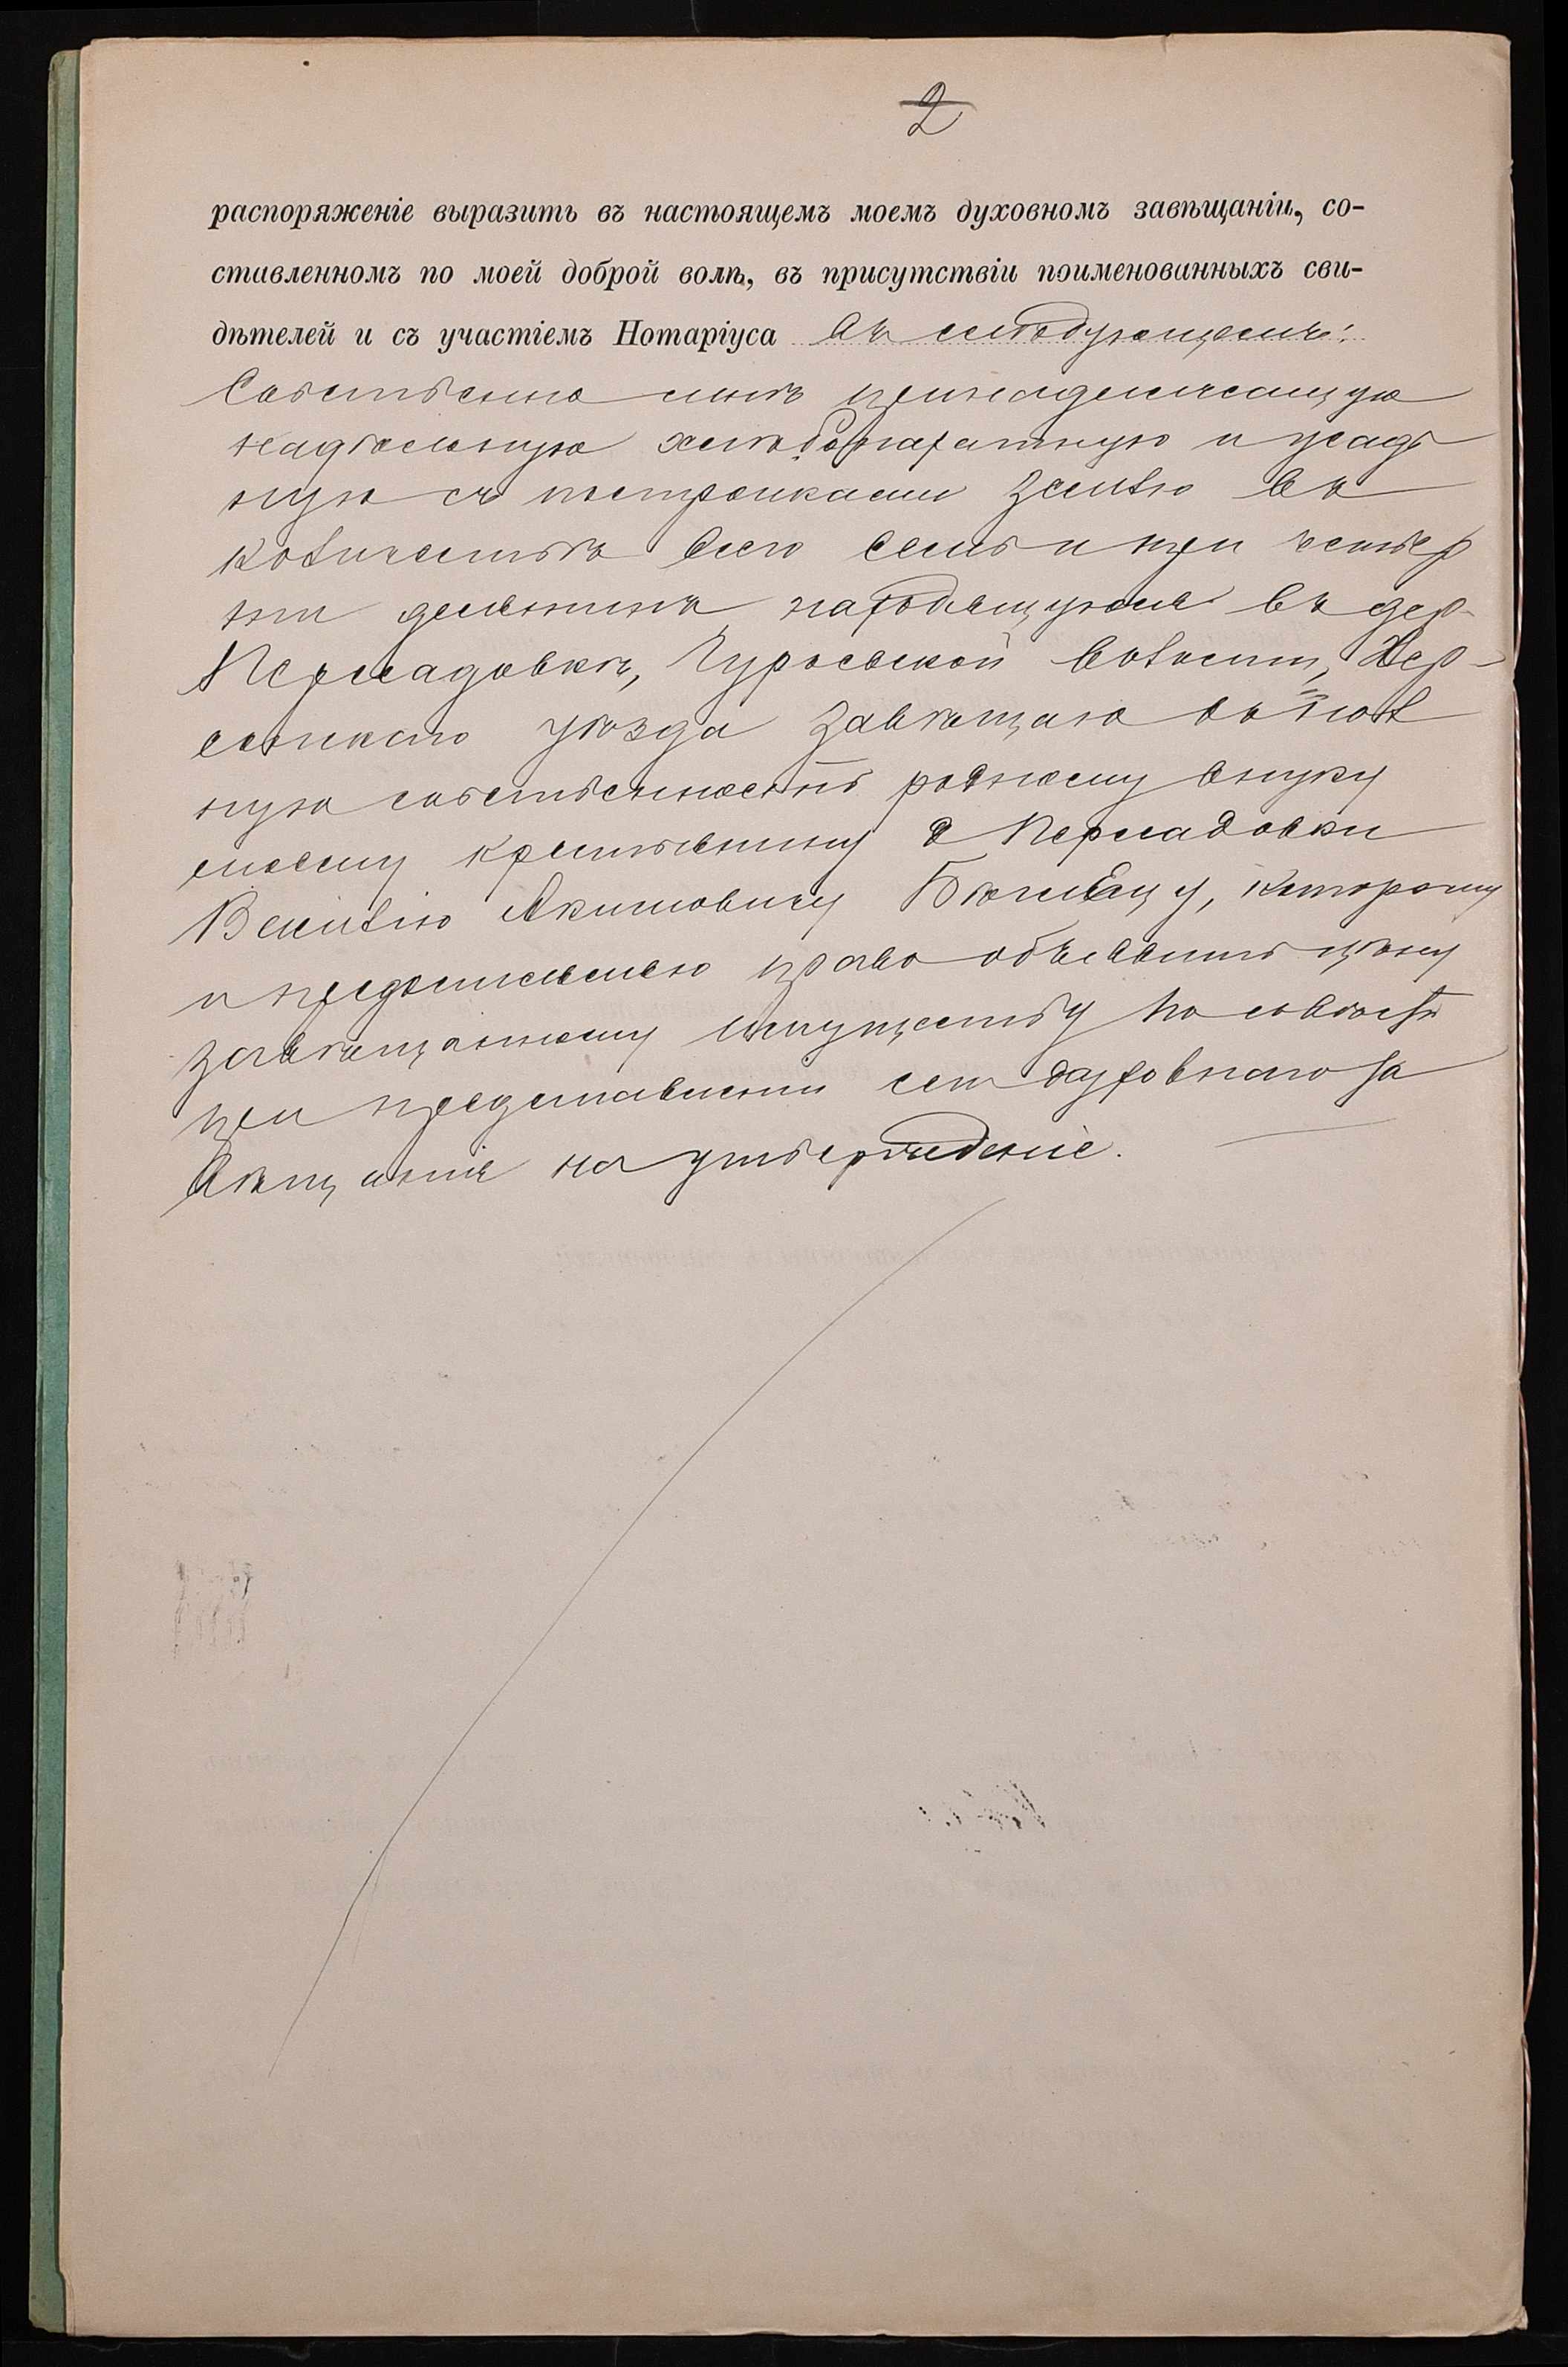 2
распоряженіе выразить въ настоящемъ моемъ духовномъ завѣщаніи, со-
ставленномъ по моей доброй волѣ, въ присутствіи поименованныхъ сви-
дѣтелей и съ участіемъ Нотаріуса въ слѣдующемъ:
Собственно мнѣ принадлежащую
надѣльную хлѣбопахатную и усадь
ную съ постройками землю въ
количествѣ всего семь и три четвер
ти десятинъ, находящуюся въ дер-
Пересадовкѣ, Гурьевской волости, Хер-
сонскаго уѣзда завѣщаю въ пол
ную собственность родному внуку
моему крестьянину д Пересадовки
Василію Акимовичу, которому
и предоставляю право объявить цѣну
завѣщанному имуществу по совѣсти
при представленіи сего духовнаго за
вѣщанія на утвержденіе.